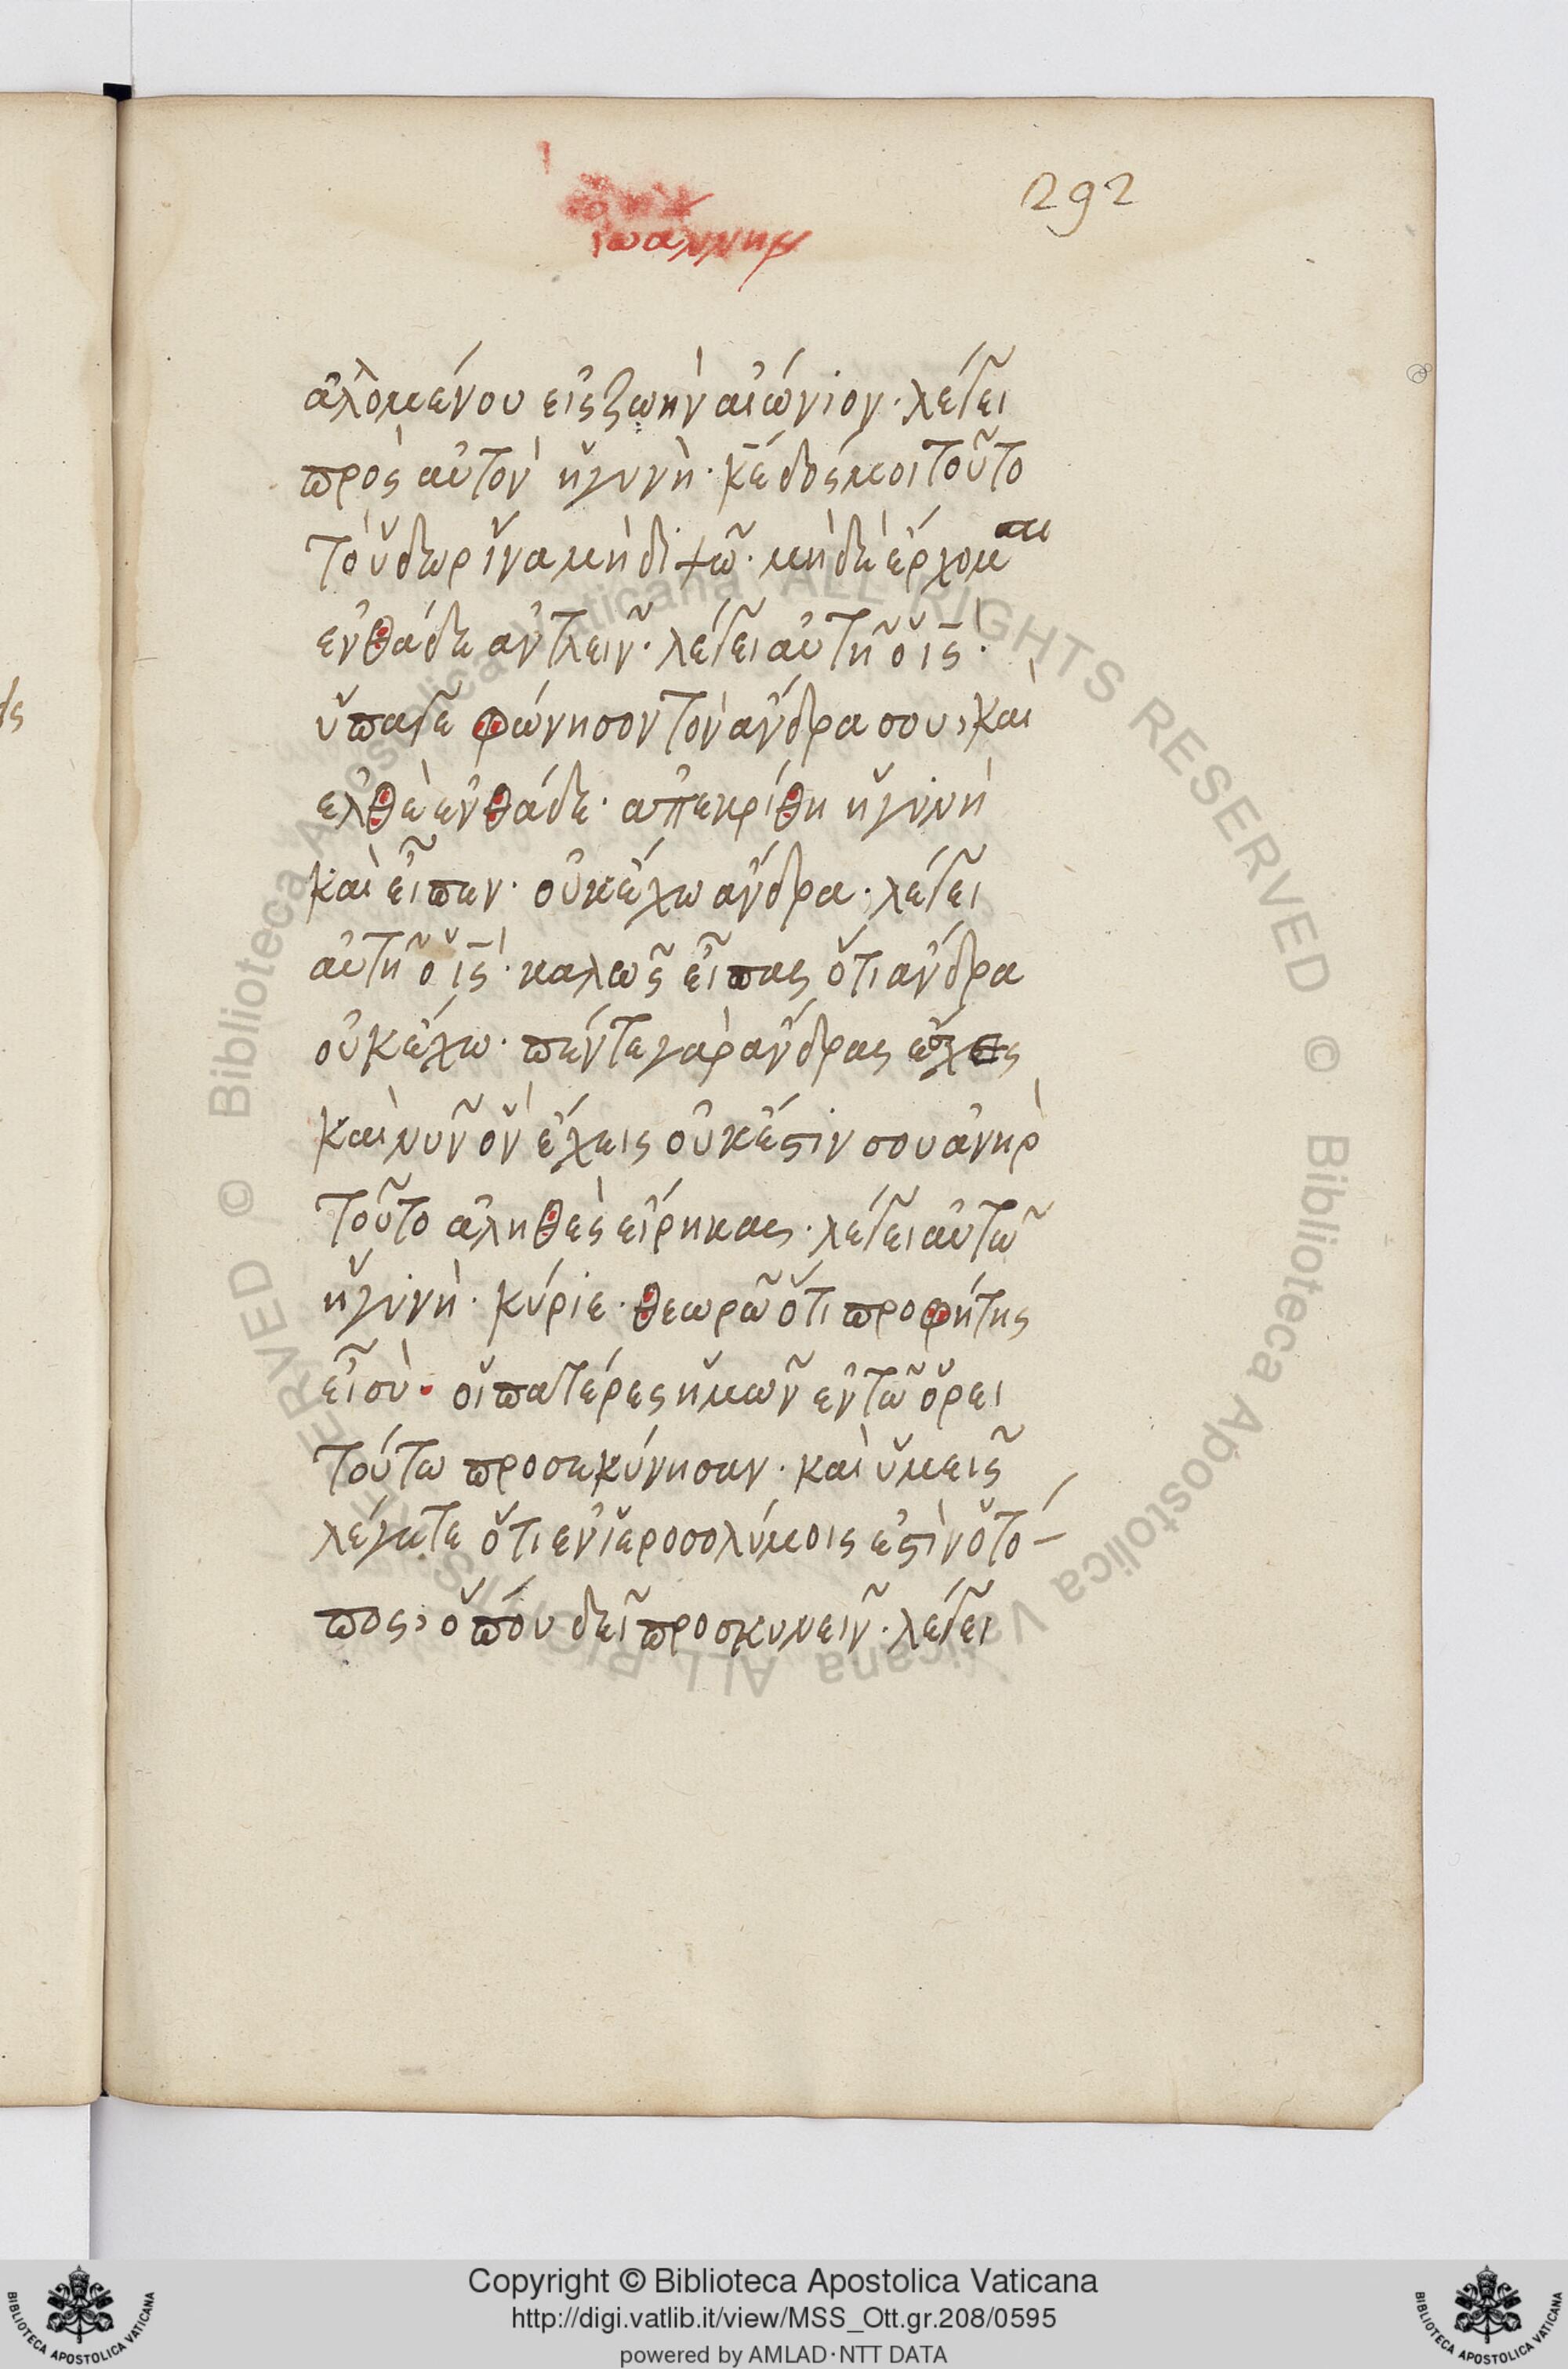 292
ιωαννην
ἀλλομένου εἰς ζωὴν αἰώνιον· λέγει
πρὸς αὐτὸν ἡ γυνή· κ̅ε̅ δός μοι τοῦτο
τὸ ὕδωρ ἵνα μὴ διψῶ· μὴ δὲ ἔρχομαι
ἐνθάδε ἀντλεῖν· λέγει αὐτῆ ὁ ι̅ς̅·
ὕπαγε φώνησον τὸν ἄνδρα σου, καὶ
ἐλθὲ ἐνθάδε· ἀπεκρίθη ἡ γυνὴ
καὶ εἶπεν· οὐκ ἔχω ἄνδρα· λέγει
αὐτῆ ὁ ι̅ς̅· καλῶς εἶπας ὅτι ἄνδρα
οὐκ ἔχω· πέντε γὰρ ἄνδρας ἔσχες
καὶ νῦν ὃν ἔχεις οὐκ ἔστιν σου ἀνὴρ
τοῦτο ἀληθὲς εἴρηκας· λέγει αὐτῶ
ἡ γυνή· κύριε· θεωρῶ ὅτι προφήτης
εἶ σύ· οἱ πατέρες ἡμῶν ἐν τῶ ὄρει
τούτω προσεκύνησαν· καὶ ὑμεῖς
λέγετε ὅτι ἐν ἱεροσολύμοις ἐστὶν ὁ τό-
πος, ὅπου δεῖ προσκυνεῖν· λέγει
Copyright © Biblioteca Apostolica Vaticana
http://digi.vatlib.it/view/MSS_Ott.gr.208/0595
powered by AMLAD·NTT DATA